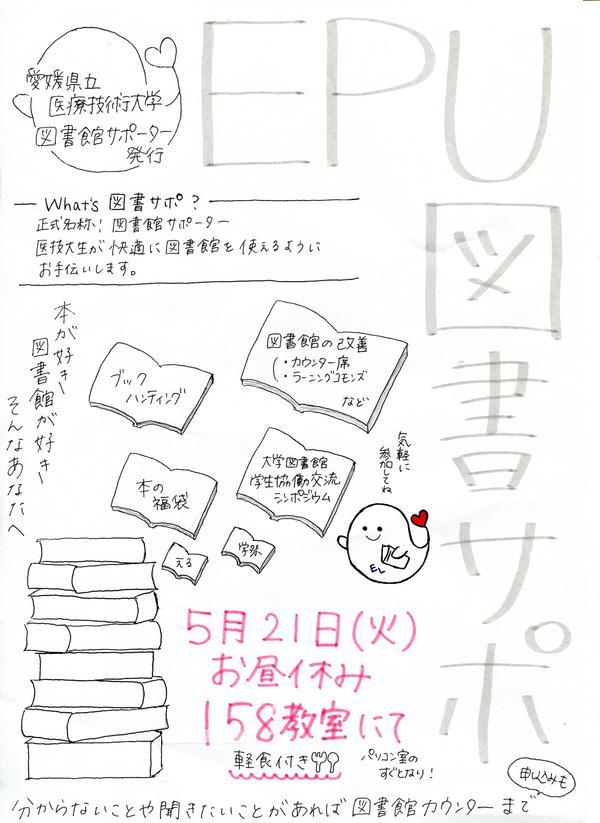 愛媛県立
医療技術大学
図書館サポーター
発行
EPU
図書サポ
What's 図書サポ?
正式名称!図書館サポーター
医技大生が快適に図書館を使えるように
お手伝いします。
本が好き!
図書館が好き!
そんなあなたへ
ブック
ハンティング
図書館の改善
(・カウンター席
・ラーニングコモンズ
など
本の
福袋
大学図書館
学生協働交流
シンポジウム
気軽に
参加してね
える
学祭
EL
5月21日(火)
お昼休み
158教室にて
軽食付き
パソコン室の
すぐとなり!
申し込みも
分からないことや聞きたいことがあれば図書館カウンターまで